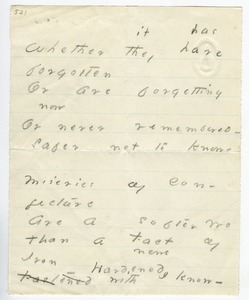 521
it has
Whether they have
forgotten
Or are forgetting
now
Or never remembered -
Safer not to know
Miseries of con -
jecture
Are a softer woe
Than a Fact of
Iron
Hardened with I know -